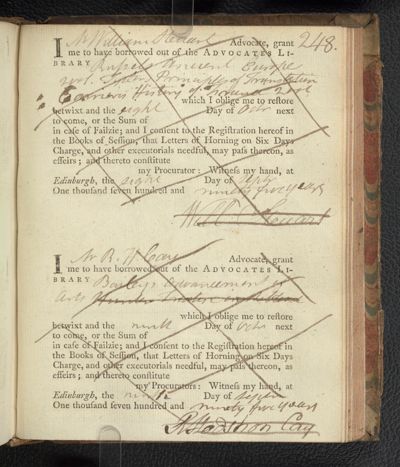 248.
I Mr William Stewart Advocate, grant
me to have borrowed out of the ADVOCATES LI-
BRARY Russels Ancient Europe
2 vol. Principles of Translation
History of 2 vol
which I oblige me to restore
betwixt and the eight Day of Octr next
to come, or the Sum of
in case of Failzie; and I consent to the Registration hereof in
the Books of Session, that Letters of Horning on Six Days
Charge, and other executorials needful, may pass thereon, as
effeirs; and thereto constitute
my Procurator: Witness my hand, at
Edinburgh, the eight Day of Septr
One thousand seven hundred and ninety five years
Will Stewart
I Mr R. H. Cay Advocate, grant
me to have borrowed out of the ADVOCATES LI-
BRARY Bailleys Advancement of
Arts
which I oblige me to restore
betwixt and the ninth Day of Octr next
to come, or the Sum of
in case of Failzie; and I consent to the Registration hereof in
the Books of Session, that Letters of Horning on Six Days
Charge, and other executorials needful, may pass thereon, as
effeirs; and thereto constitute
my Procurators: Witness my hand, at
Edinburgh, the ninth Day of Septr
One thousand seven hundred and ninety five years
R Hodshon Cay